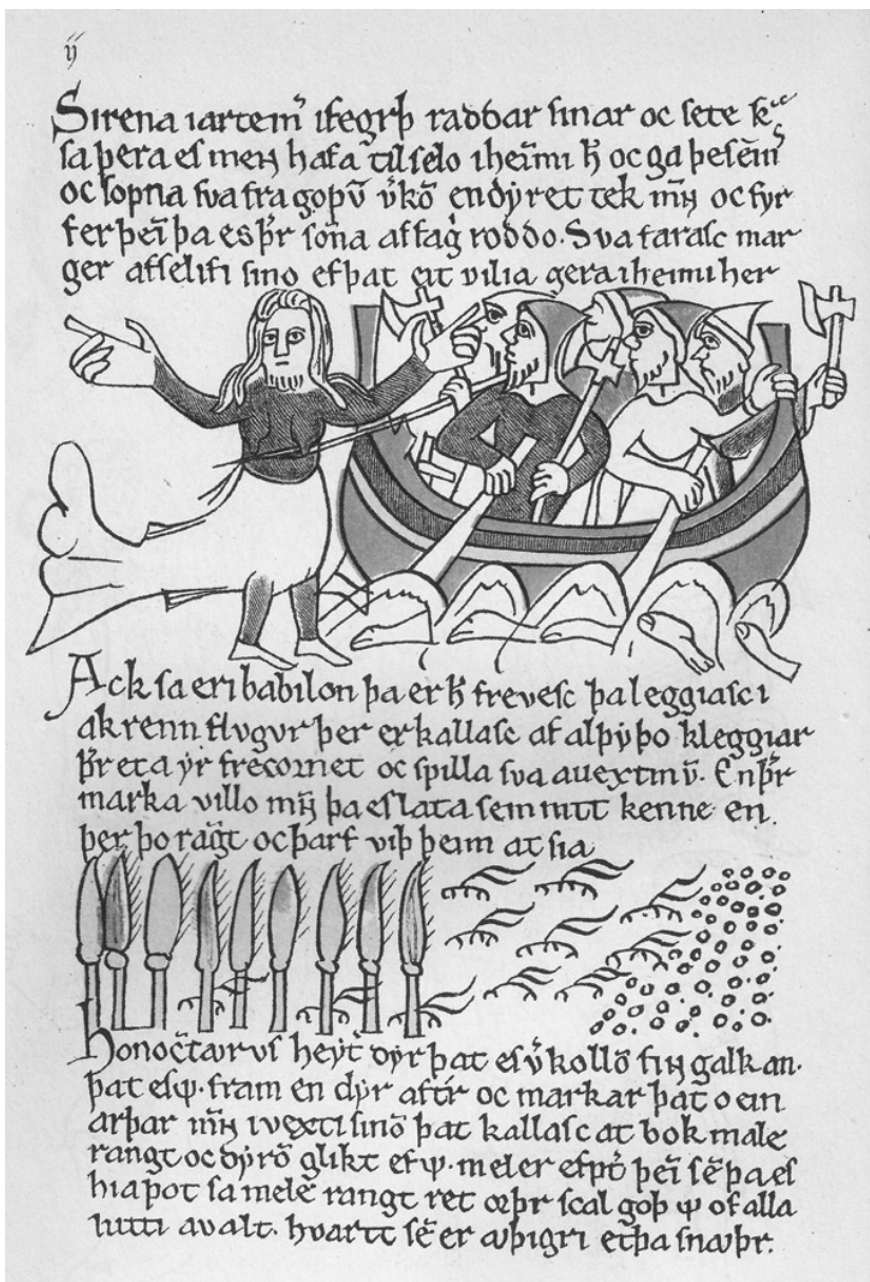 ij
Sirena iartem̄ ifegrþ raddar sinar oc sete k
sa þera es meɴ hafa til selo iheimi h̄ oc ga þesem̄
oc sopna sva fra goþū v̄kō endyret tek m̄ɴ oc fyr
fer þeī þa es þr̄ sofna af fag roddo. Sva farasc mar
ger af selifi sino ef þat eit vilia gera iheimi her
Ack sa er i babilon þa er h̄ frevesc þa leggiasc i
akrenn flugur þer er kallasc af alþyþo kleggiar
þr̄ eta yr frecornet oc spilla sva auextinū. En þr̄
marka villo m̄ɴ þa es lata sem rutt kenne en
þer þo rāgt oc þarf viþ þeim at sia
Honoc̄taurus heyt̄ dyr þat es v̄ kollō fiɴ galkan.
þat es ᛘ. fram en dyr aftr oc markar þat o ein
arþar m̄ɴ i vexti sinō þat kallasc at bok male
rangt oc dyrō glikt ef ᛘ. meler efþt̄ þeī sē þa es
hia þot sa mele rangt ret œþr scal goþ ᛘ of alla
lutti avalt. hvartt sē er aþigri etþa snaþr.